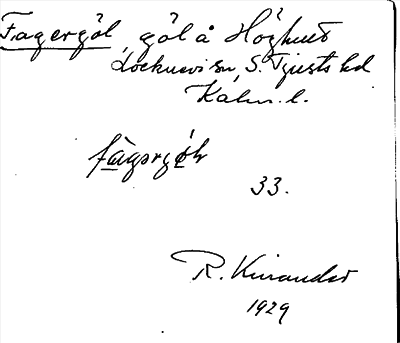 Fagergöl, göl å Höghult
Locknevi sn, S. Tjusts hd
Kalm. l.
fàgərgö́l
33.
R. Kinander
1929